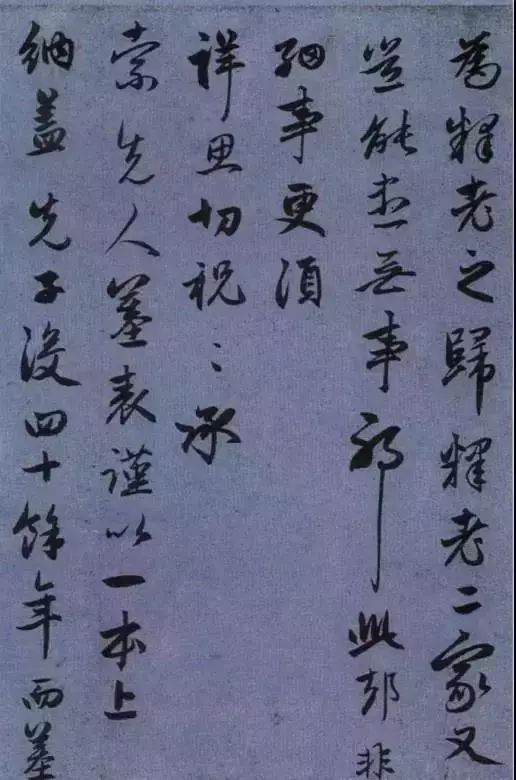 為釋老之歸釋老二家又
豈能盡無事邪此却非
細事更須
詳思切祝〻承
索先人墓表謹以一本上
納蓋先子沒四十餘年而墓